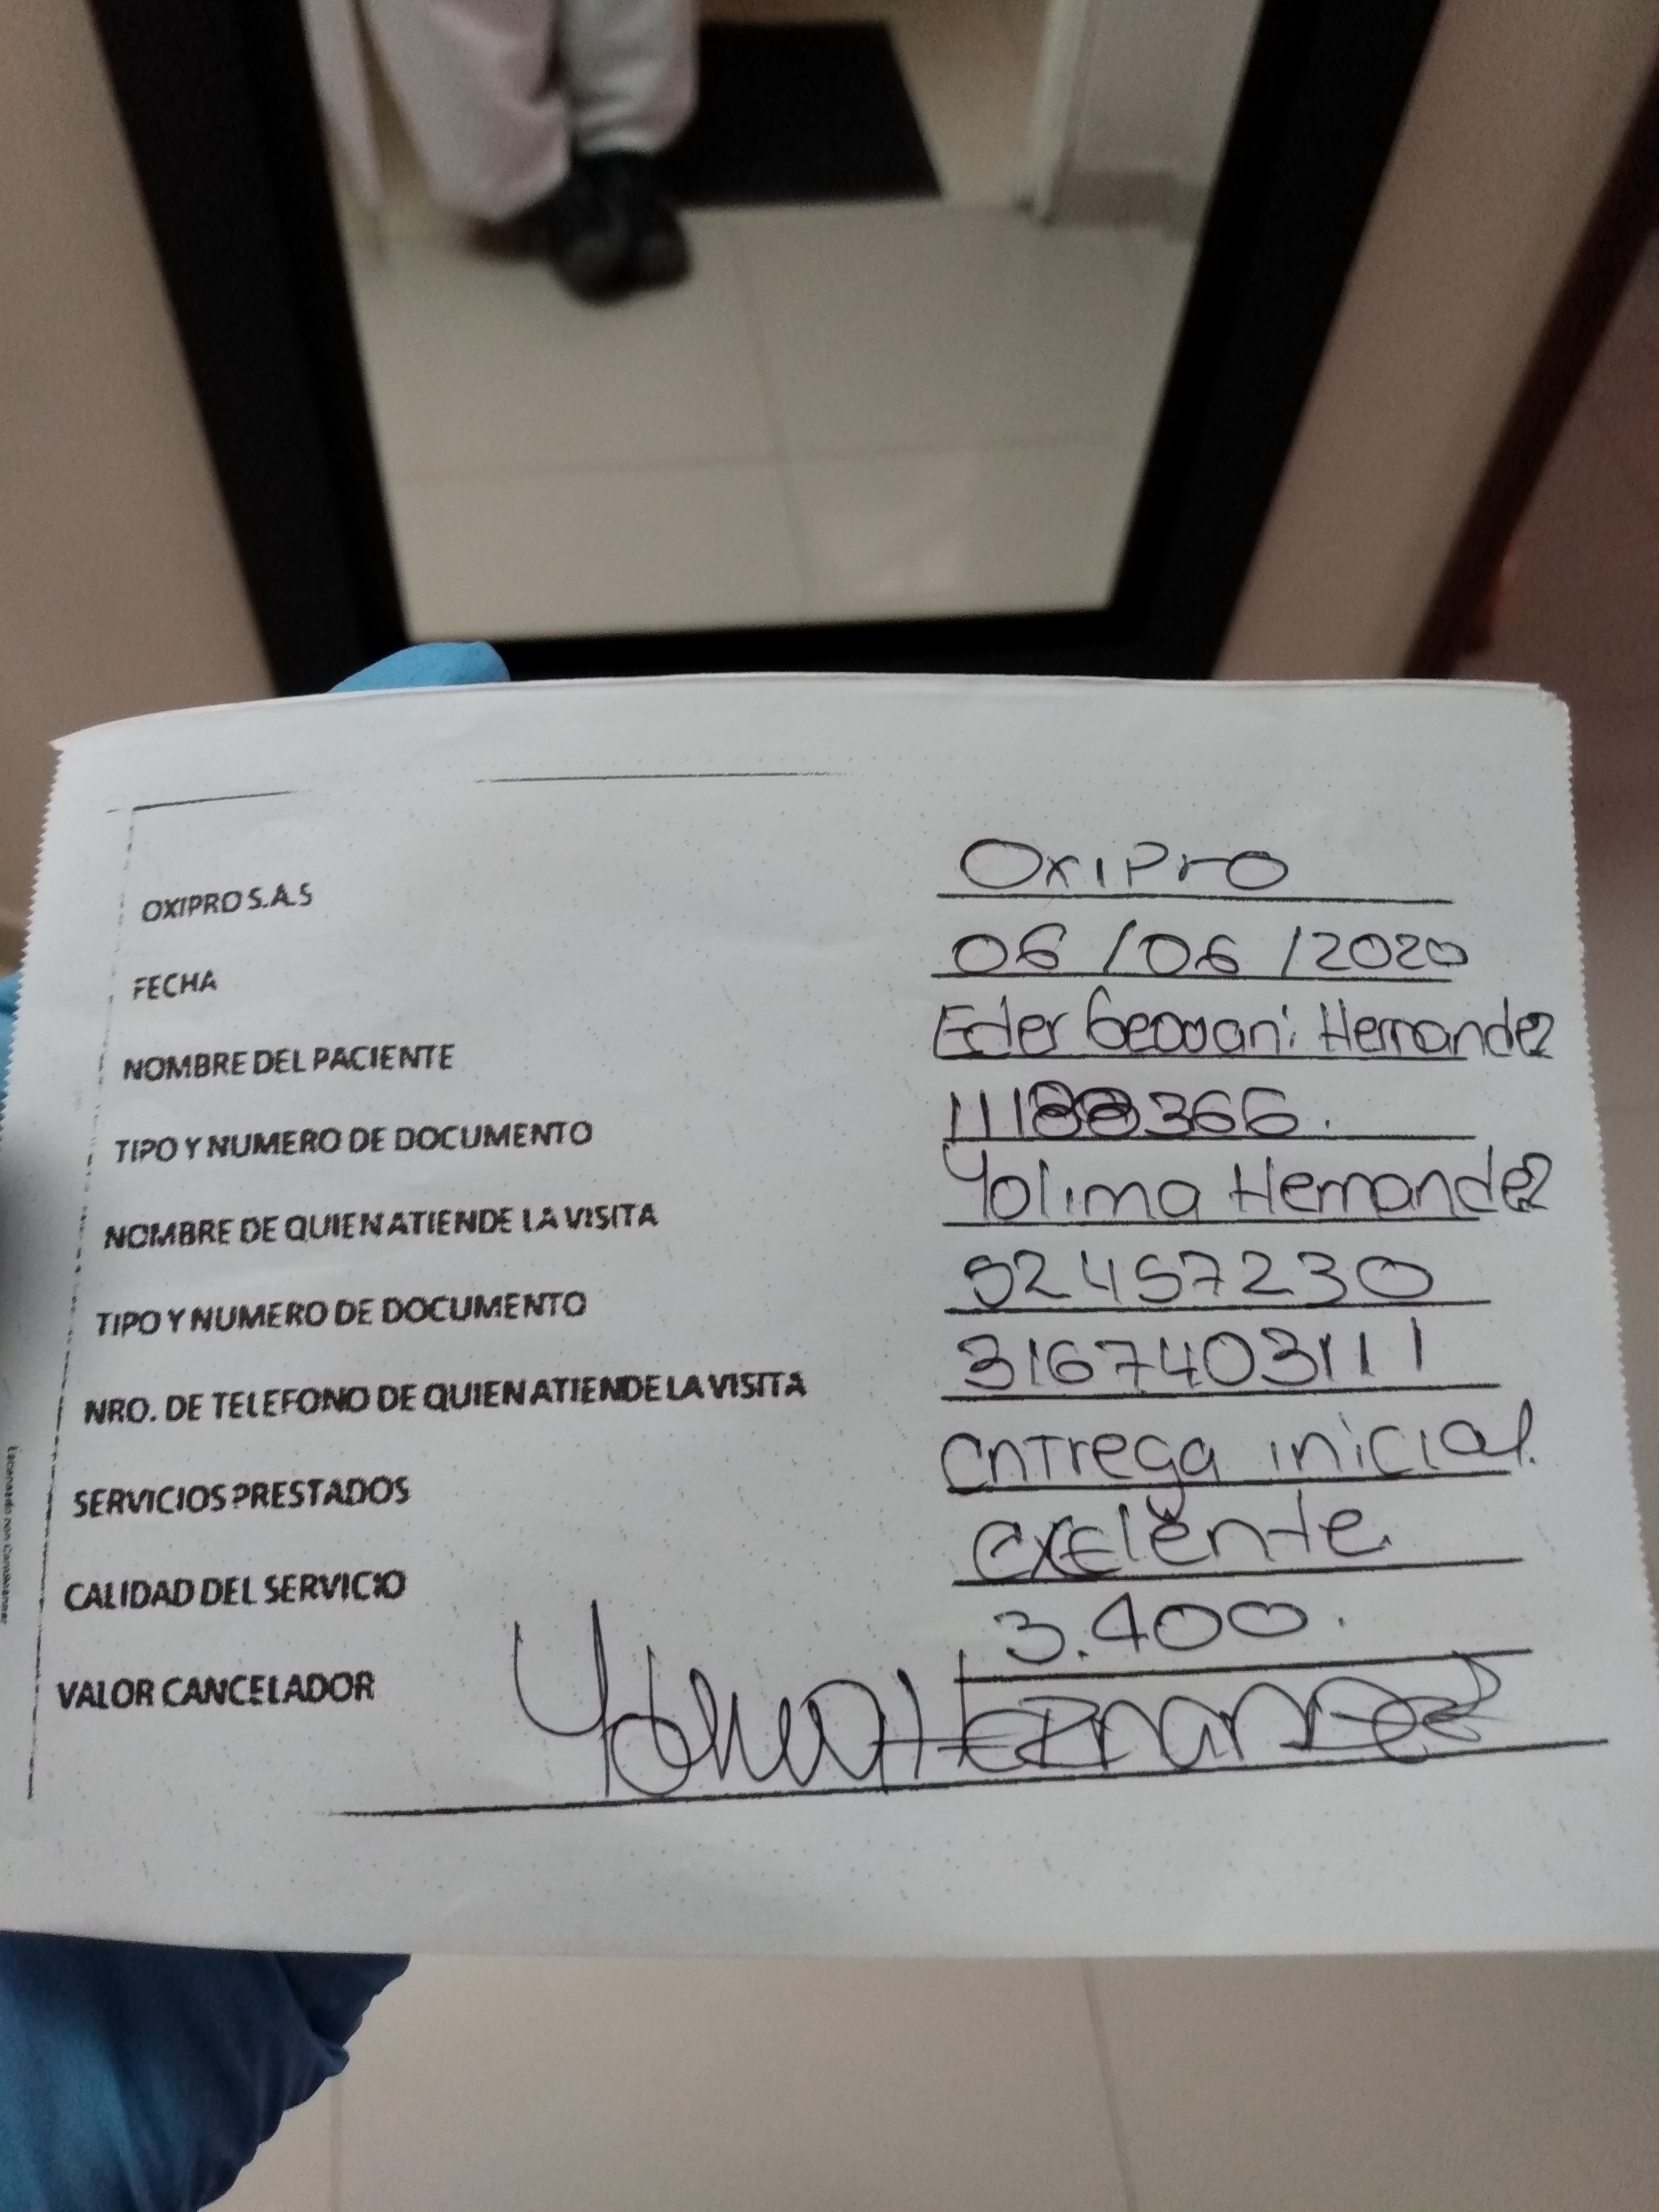 OXIPRO S.A.S OxiPro
FECHA 06/06/2020
NOMBRE DEL PACIENTE Eder Geovani Hernandez
TIPO Y NUMERO DE DOCUMENTO 11188366.
NOMBRE DE QUIEN ATIENDE LA VISITA Yolima Hernandez
TIPO Y NUMERO DE DOCUMENTO 52457230
NRO. DE TELEFONO DE QUIEN ATIENDE LA VISITA 3167403111
SERVICIOS PRESTADOS Entrega inicial.
CALIDAD DEL SERVICIO exelente
VALOR CANCELADOR 3.400.
Yolima Hernandez
Escaneado con CamScanner